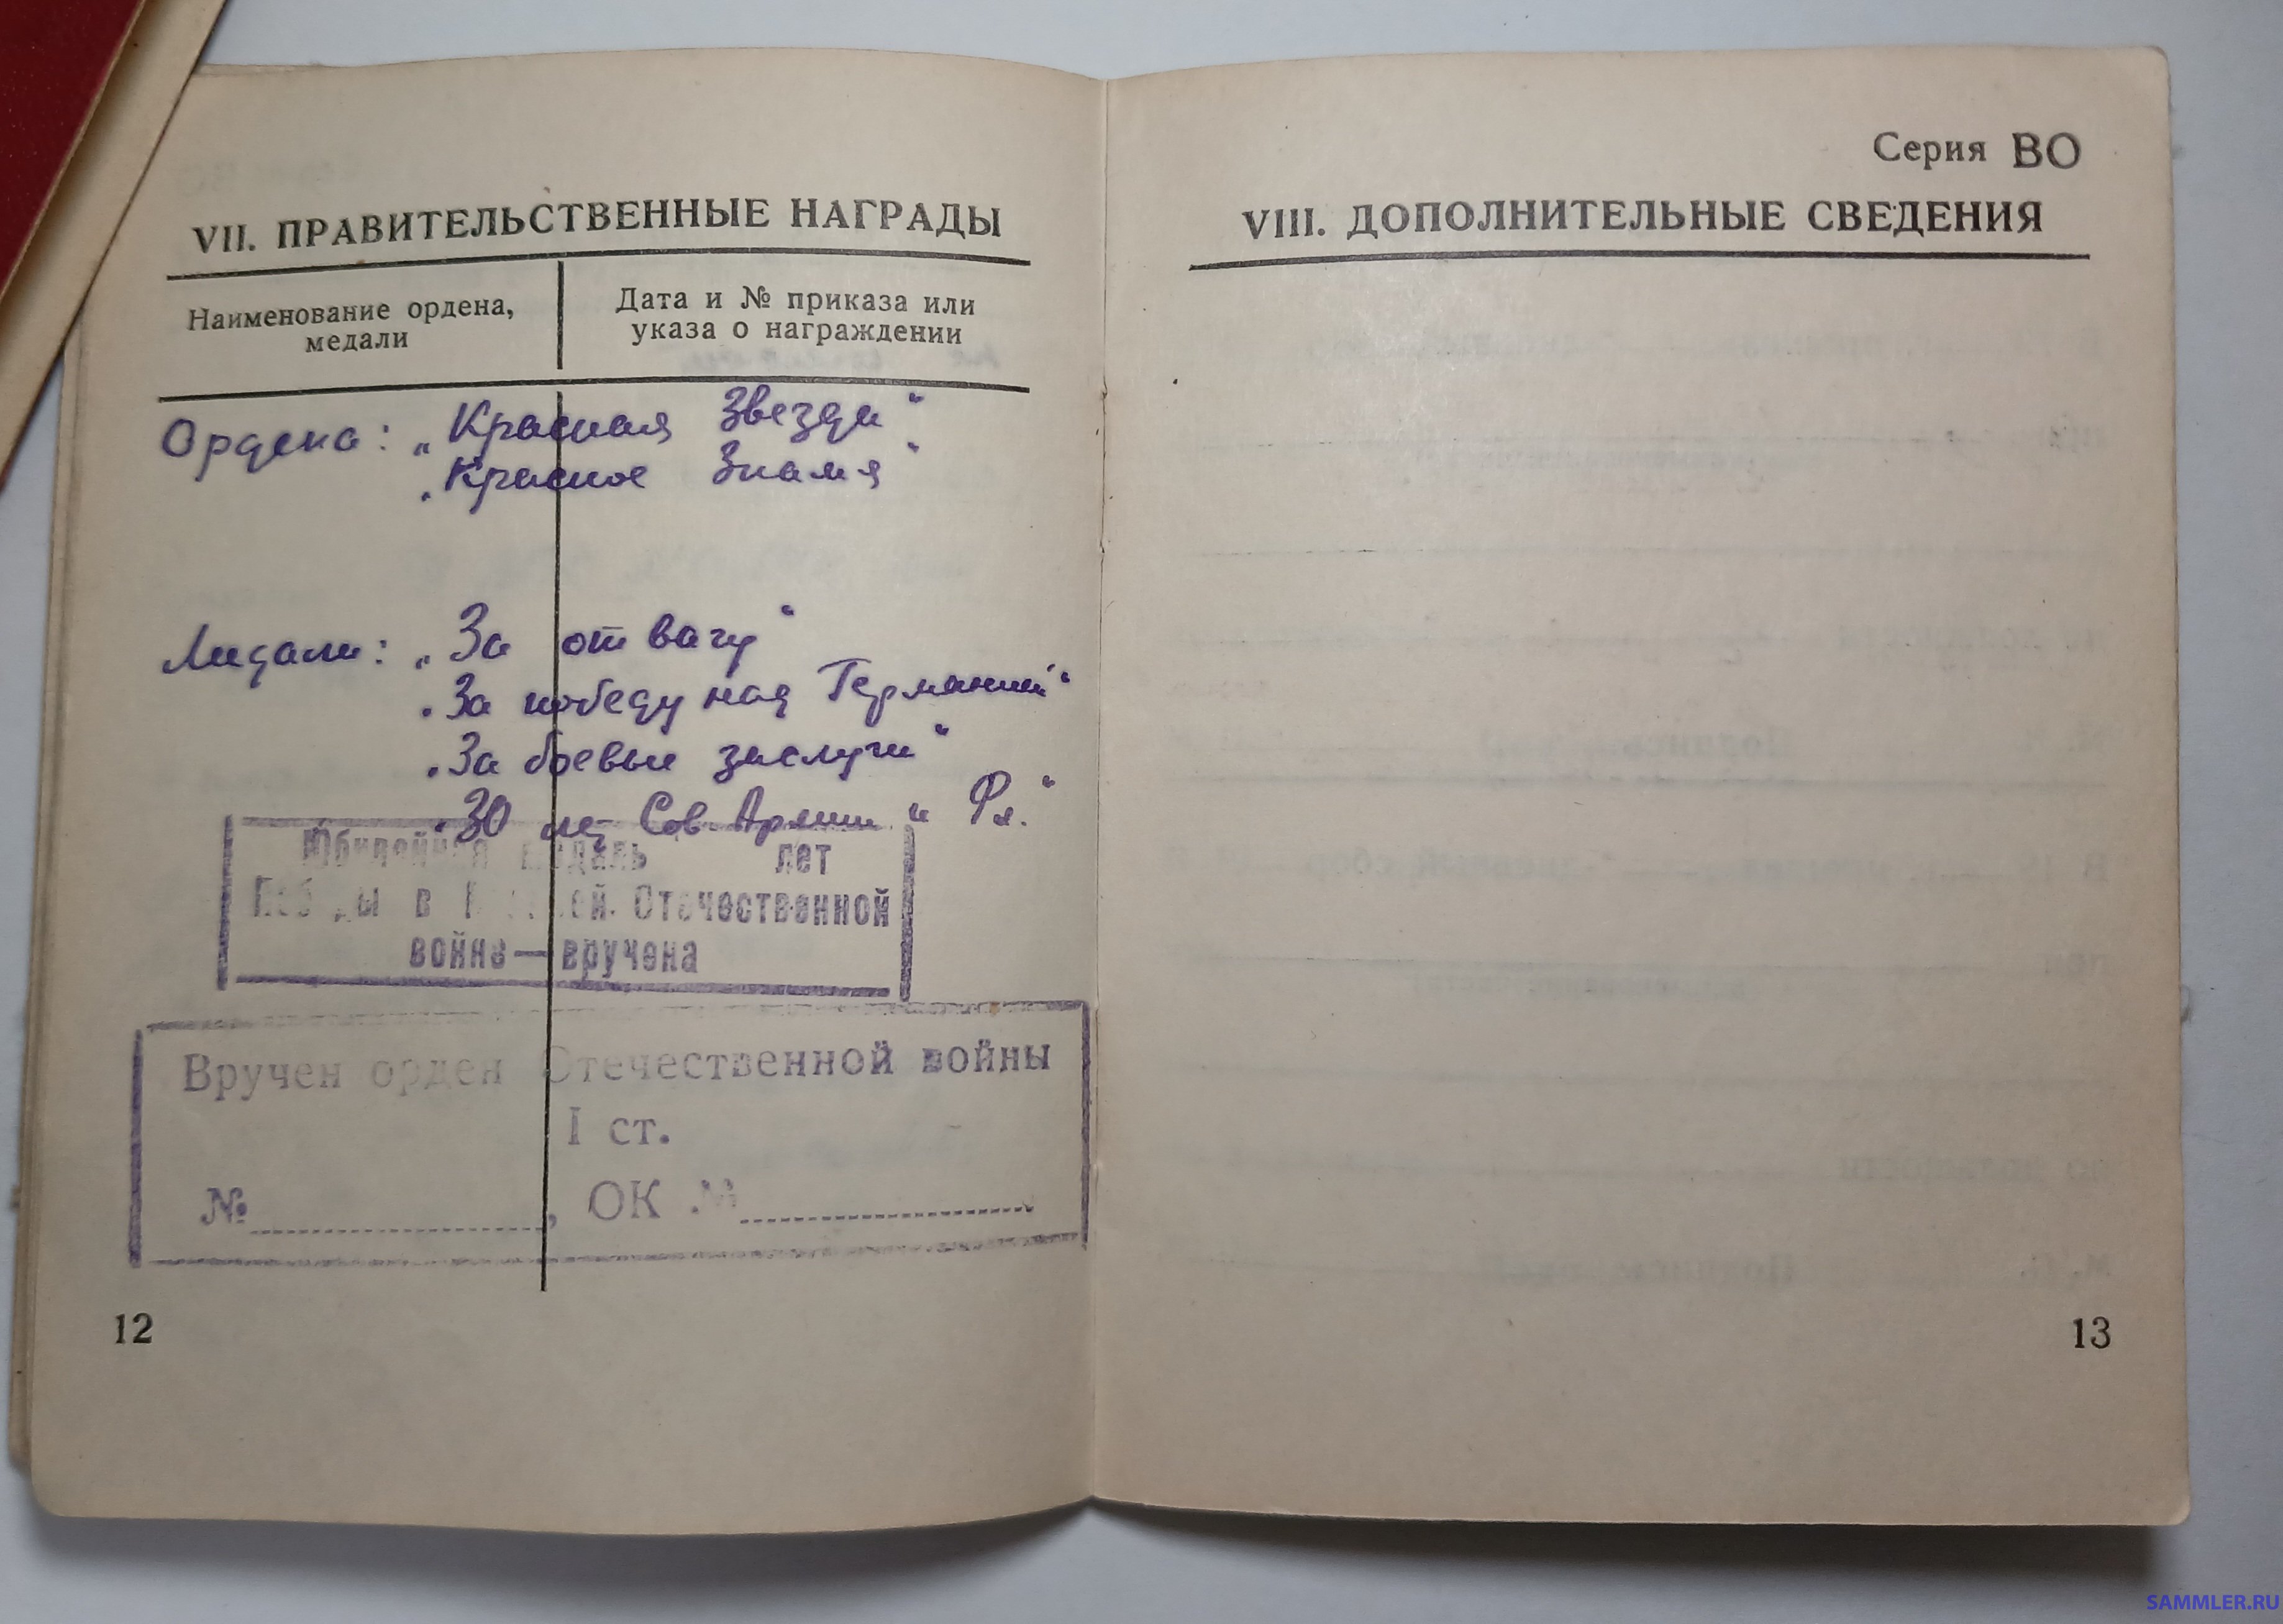 VII. ПРАВИТЕЛЬСТВЕННЫЕ НАГРАДЫ
Наименование ордена,
медали
Дата и № приказа или
указа о награждении
Ордена: „Красная Звезда“
„Красное Знамя“
Медали: „За отвагу“
„За победу над Германией“
„За боевые заслуги“
„30 лет Сов. Армии и Фл.“
Юбилейная медаль лет
Победы в Великой Отечественной
войне — вручена
Вручен орден Отечественной войны
I ст.
№ , ОК №
12
Серия ВО
VIII. ДОПОЛНИТЕЛЬНЫЕ СВЕДЕНИЯ
13
SAMMLER.RU